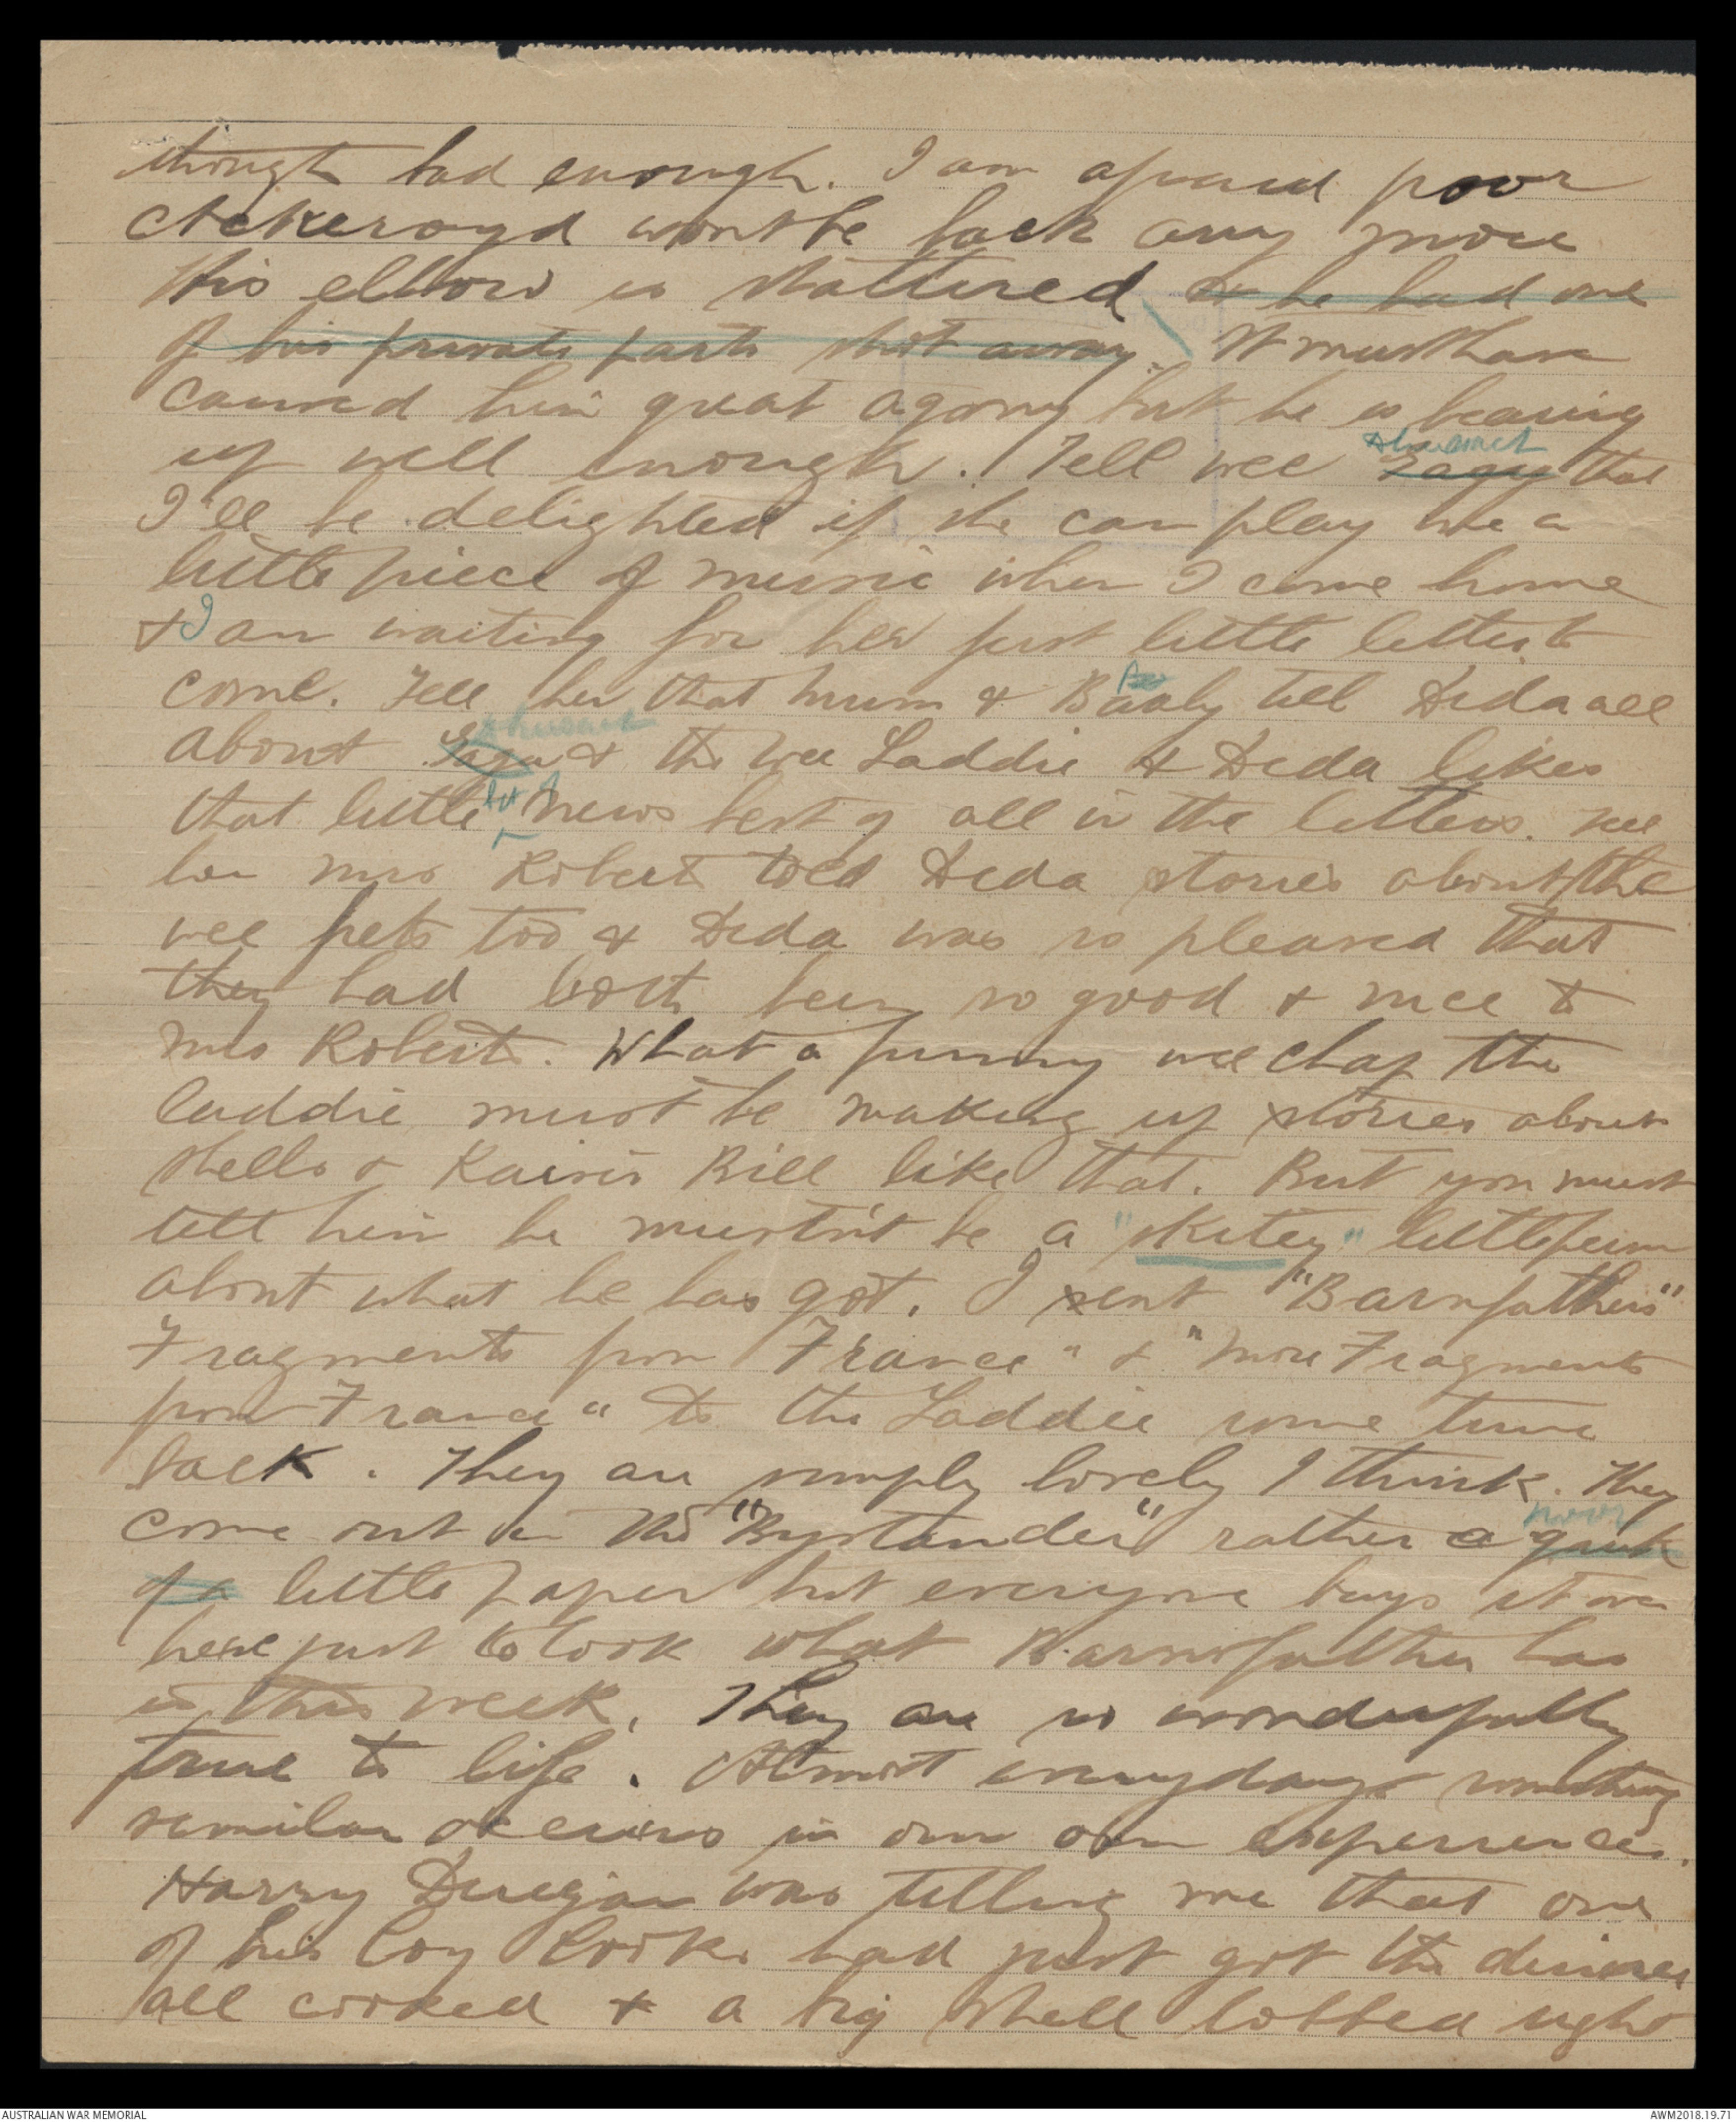 though bad enough. I am afraid poor
Ackeroyd wont be back any more
His elbow is shattered & he had one
of his private parts shot away. It must have
caused him great agony but he is bearing
up well enough. Tell wee that
I'll be delighted if she can play me a
little piece of music when I come home
& I am waiting for her first little letter to
come. Tell her that Mum & Baaby tell Dida all
about & the wee Laddie & Dida likes
that little bit of news best of all in the letters. Tell
her Mrs Roberts told Dida stories about the
wee pets too & Dida was so pleased that
they had both been so good & nice to
Mrs Roberts. What a funny wee chap the
laddie must be making up stories about
shells & Kaiser Bill like that. But you must
tell him he mustn't be a "skitey" little
about what he has got. I sent "Barnfathers"
Fragments from France" & "More Fragments
from France" to the Laddie some time
back. They are simply lovely I think. They
come out in the "Bystander" rather a poor
of a little paper but everyone buys it over
here just to look what Barnsfather has
in this week. They are so wonderfully
true to life. Almost everyday something
similar occurs in our own experiences.
Harry Duigan was telling me that one
of his Coy Cooks had just got the dinner
all cooked & a big shell lobbed right
AUSTRALIAN WAR MEMORIAL
AWM2018.19.71